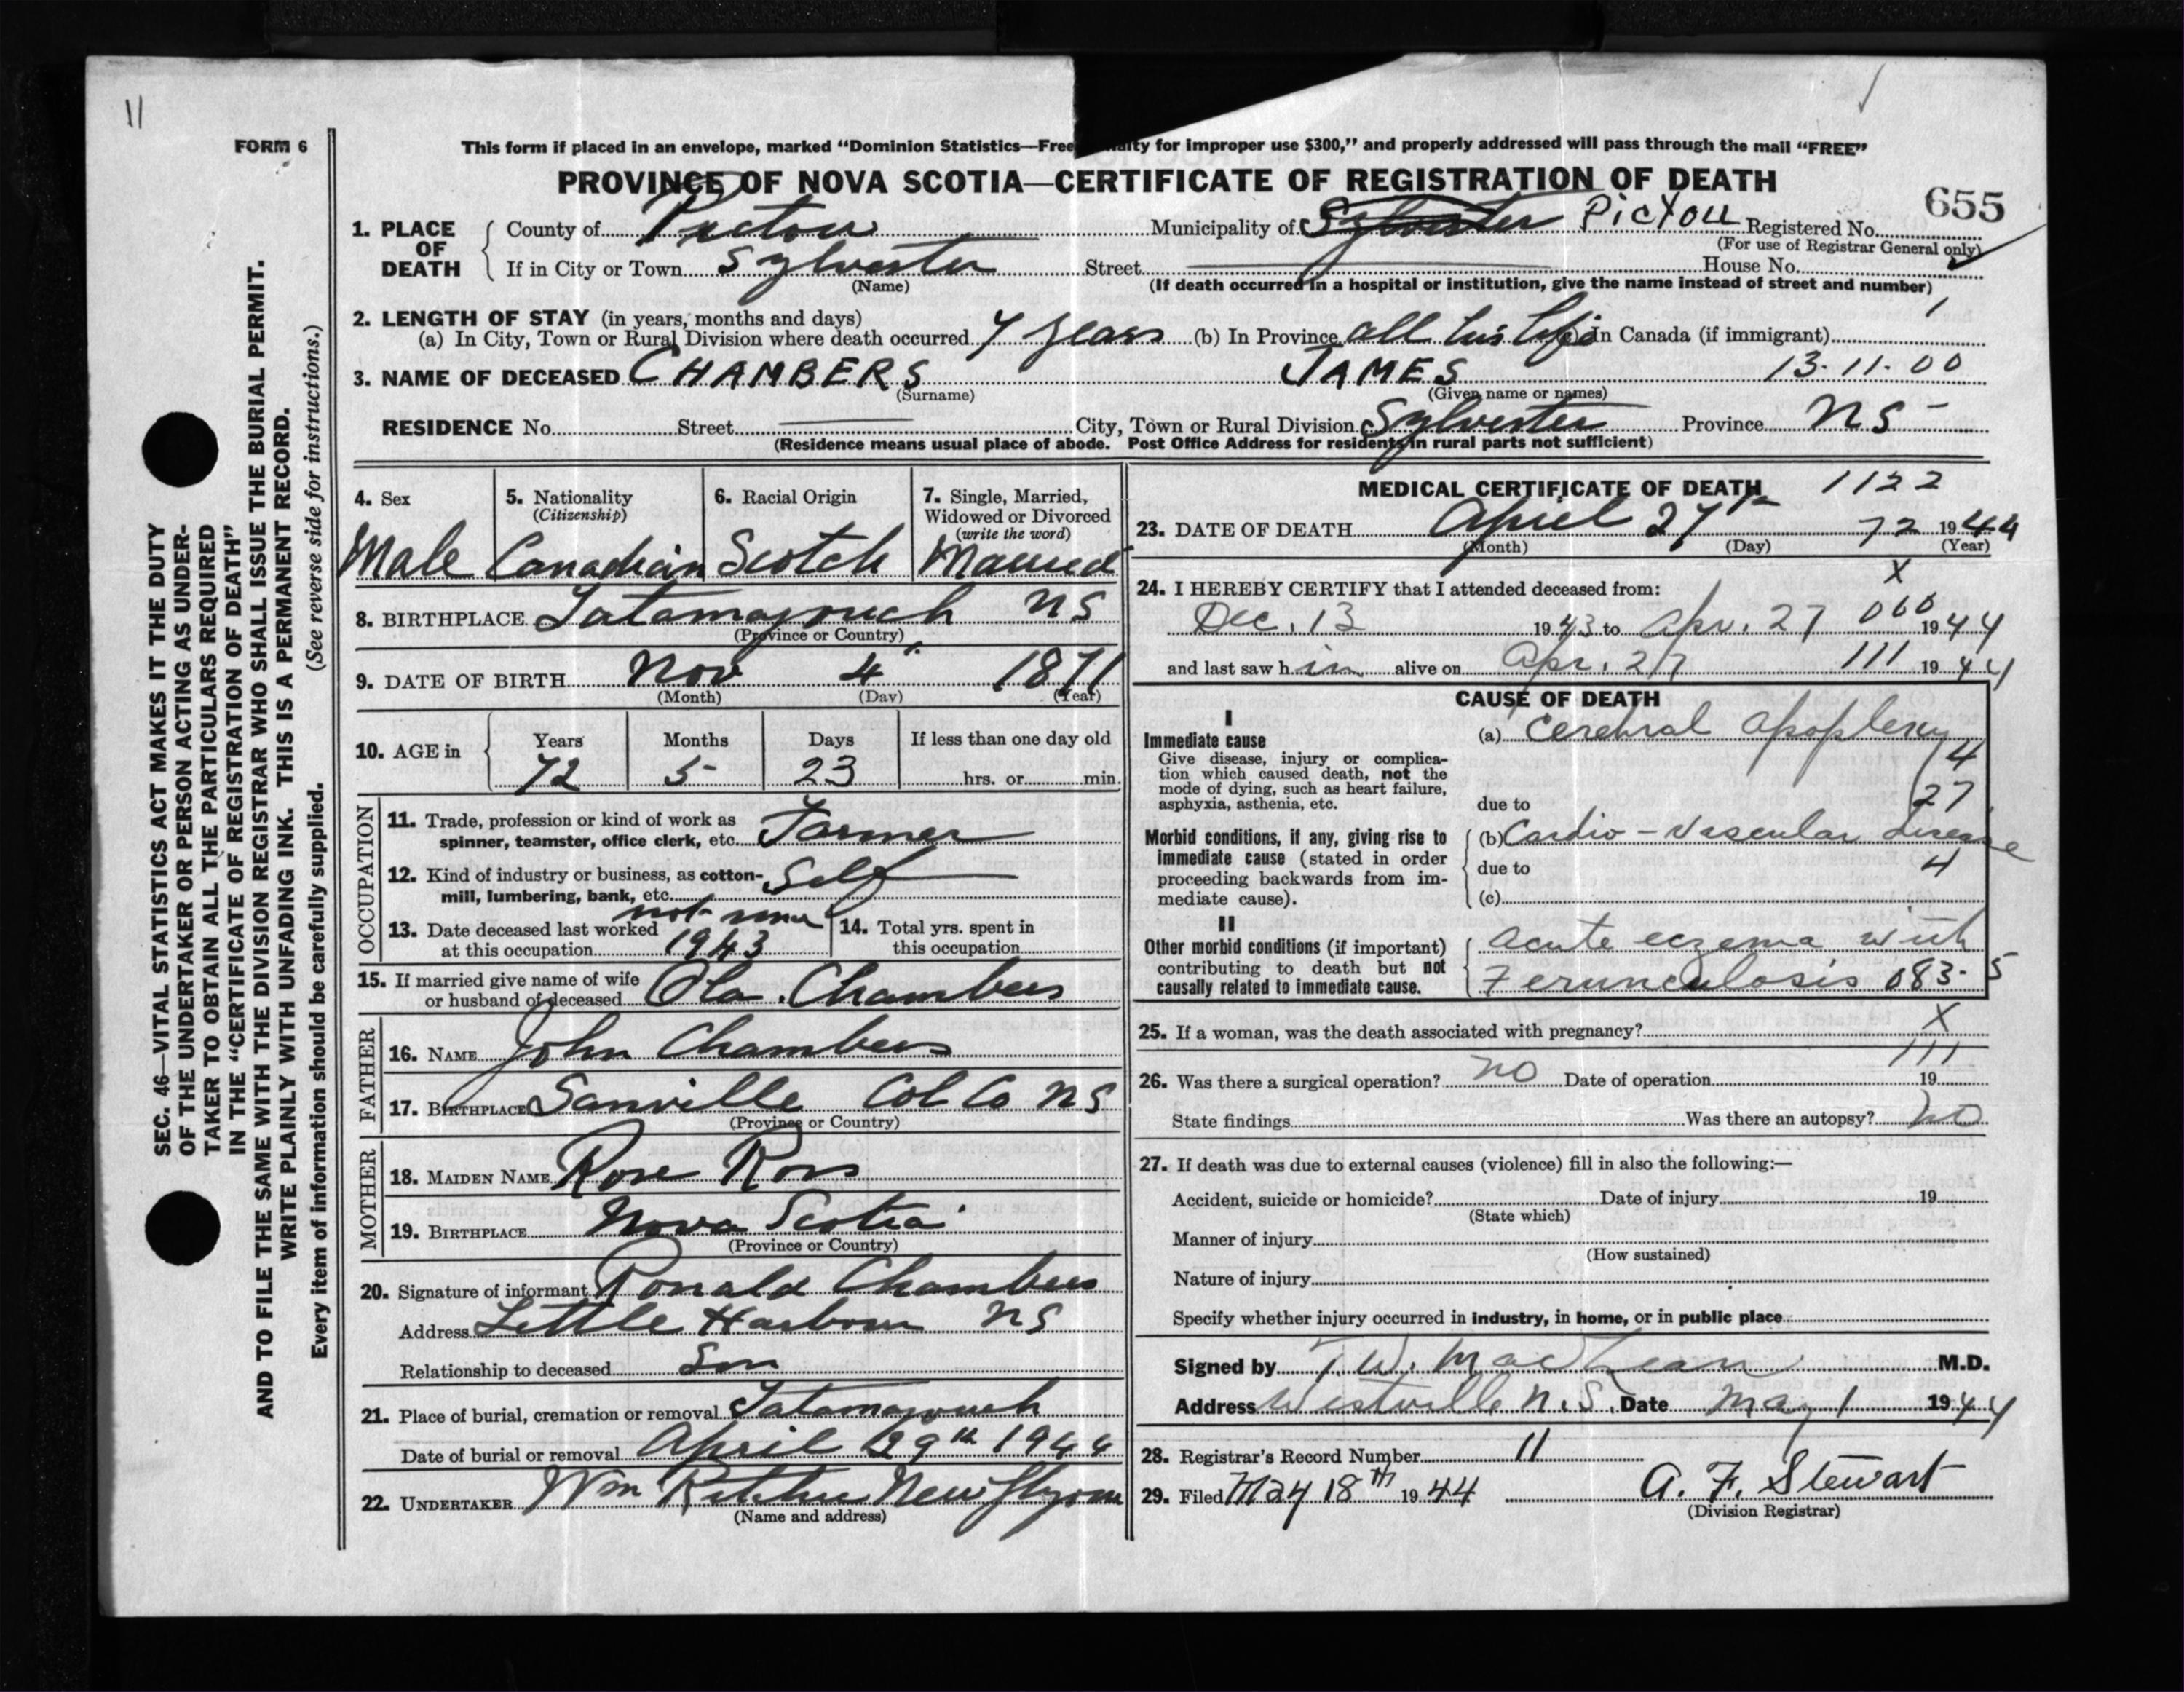 11
FORM 6
This form if placed in an envelope, marked “Dominion Statistics—Free alty for improper use $300,” and properly addressed will pass through the mail “FREE”
PROVINCE OF NOVA SCOTIA—CERTIFICATE OF REGISTRATION OF DEATH
655
1. PLACE OF DEATH
County of Pictou
Municipality of Sylvester Pictou Registered No.
(For use of Registrar General only)
If in City or Town Sylvester Street House No.
(Name)
(If death occurred in a hospital or institution, give the name instead of street and number)
2. LENGTH OF STAY (in years, months and days)
(a) In City, Town or Rural Division where death occurred 7 years (b) In Province all his life (c) In Canada (if immigrant)
3. NAME OF DECEASED CHAMBERS JAMES 13-11-00
(Surname) (Given name or names)
RESIDENCE No. Street City, Town or Rural Division Sylvester Province NS
(Residence means usual place of abode. Post Office Address for residents in rural parts not sufficient)
4. Sex
Male
5. Nationality
(Citizenship)
Canadian
6. Racial Origin
Scotch
7. Single, Married,
Widowed or Divorced
(write the word)
Married
8. BIRTHPLACE Tatamagouch NS
(Province or Country)
9. DATE OF BIRTH Nov 4 1871
(Month) (Day) (Year)
10. AGE in
Years Months Days If less than one day old
72 5 23 hrs. or min.
OCCUPATION
11. Trade, profession or kind of work as
spinner, teamster, office clerk, etc. Farmer
12. Kind of industry or business, as cotton-
mill, lumbering, bank, etc. Self
13. Date deceased last worked not
at this occupation 1943
14. Total yrs. spent in
this occupation
15. If married give name of wife
or husband of deceased Ola Chambers
FATHER
16. NAME John Chambers
17. BIRTHPLACE Col Co NS
(Province or Country)
MOTHER
18. MAIDEN NAME Rose Ross
19. BIRTHPLACE Nova Scotia
(Province or Country)
20. Signature of informant Ronald Chambers
Address Little Harbour NS
Relationship to deceased Son
21. Place of burial, cremation or removal Tatamagouch
Date of burial or removal April 29th 1944
22. UNDERTAKER Wm Ritchie New Glasgow
(Name and address)
MEDICAL CERTIFICATE OF DEATH 1122
23. DATE OF DEATH April 27th 72 1944
(Month) (Day) (Year)
24. I HEREBY CERTIFY that I attended deceased from: X
Dec. 13 1943 to Apr. 27 060 1944
and last saw him alive on Apr. 27 111 1944
CAUSE OF DEATH
I
Immediate cause
Give disease, injury or complica-
tion which caused death, not the
mode of dying, such as heart failure,
asphyxia, asthenia, etc.
(a) Cerebral apoplexy
4
27
due to
Morbid conditions, if any, giving rise to
immediate cause (stated in order
proceeding backwards from im-
mediate cause).
(b) Cardio-vascular disease
due to 4
(c)
II
Other morbid conditions (if important)
contributing to death but not
causally related to immediate cause.
acute eczema with
Ferunculosis 083-5
25. If a woman, was the death associated with pregnancy? X
111
26. Was there a surgical operation? No Date of operation 19
State findings Was there an autopsy? No
27. If death was due to external causes (violence) fill in also the following:—
Accident, suicide or homicide? Date of injury 19
(State which)
Manner of injury
(How sustained)
Nature of injury
Specify whether injury occurred in industry, in home, or in public place
Signed by T. W. MacLean M.D.
Address Westville N.S. Date May 1 1944
28. Registrar's Record Number 11
29. Filed May 18th 1944 A. F. Stewart
(Division Registrar)
SEC. 46—VITAL STATISTICS ACT MAKES IT THE DUTY
OF THE UNDERTAKER OR PERSON ACTING AS UNDER-
TAKER TO OBTAIN ALL THE PARTICULARS REQUIRED
IN THE “CERTIFICATE OF REGISTRATION OF DEATH”
AND TO FILE THE SAME WITH THE DIVISION REGISTRAR WHO SHALL ISSUE THE BURIAL PERMIT.
WRITE PLAINLY WITH UNFADING INK. THIS IS A PERMANENT RECORD.
Every item of information should be carefully supplied. (See reverse side for instructions.)